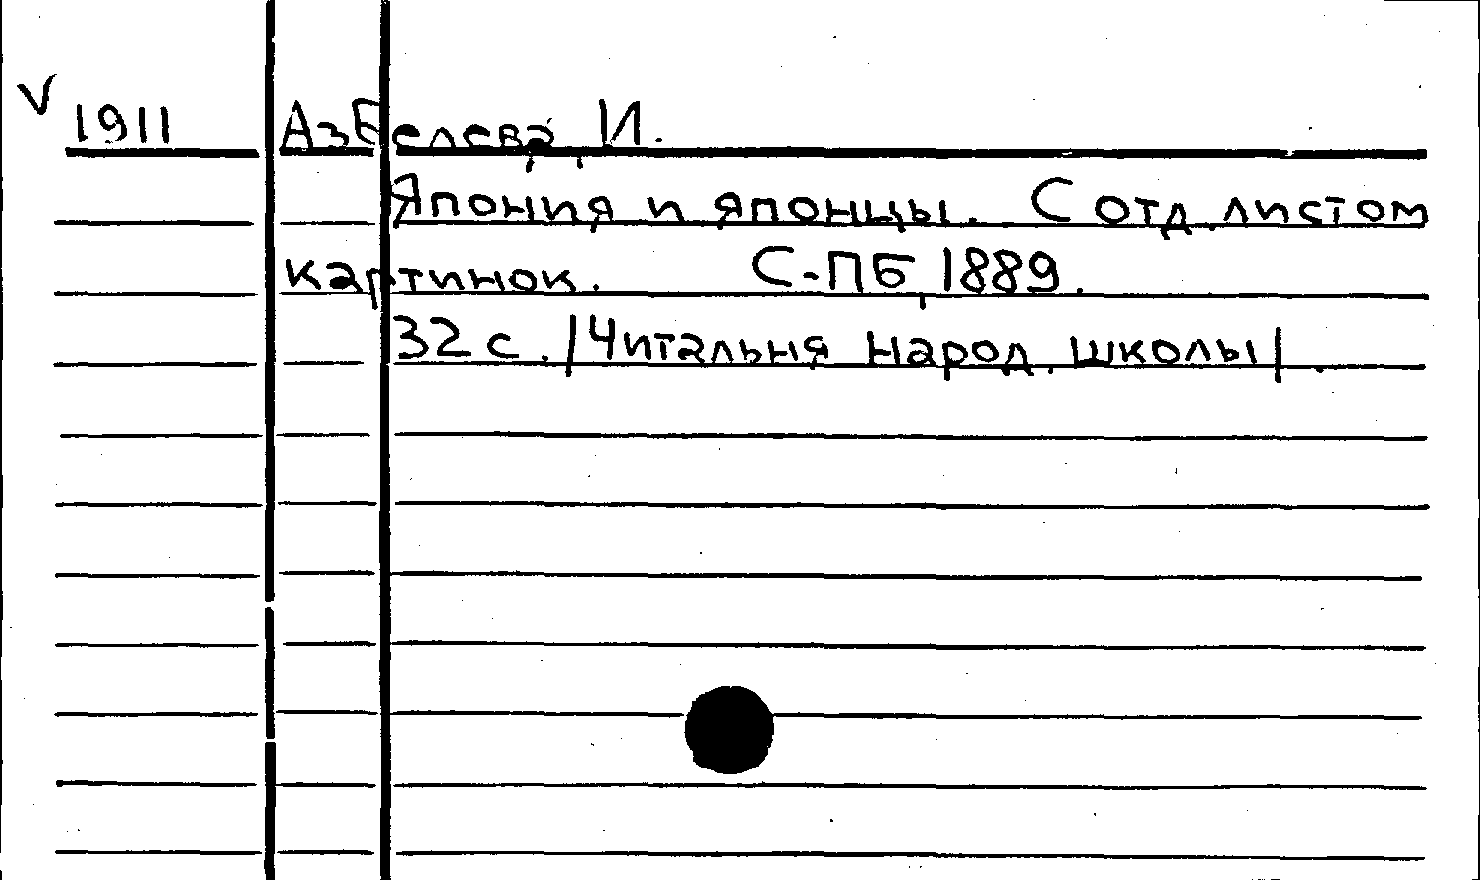 V 1911 Азбелева, И.
Япония и японцы. С отд. листом
картинок. С-ПБ, 1889.
32 с. /Читальня народ. школы/.